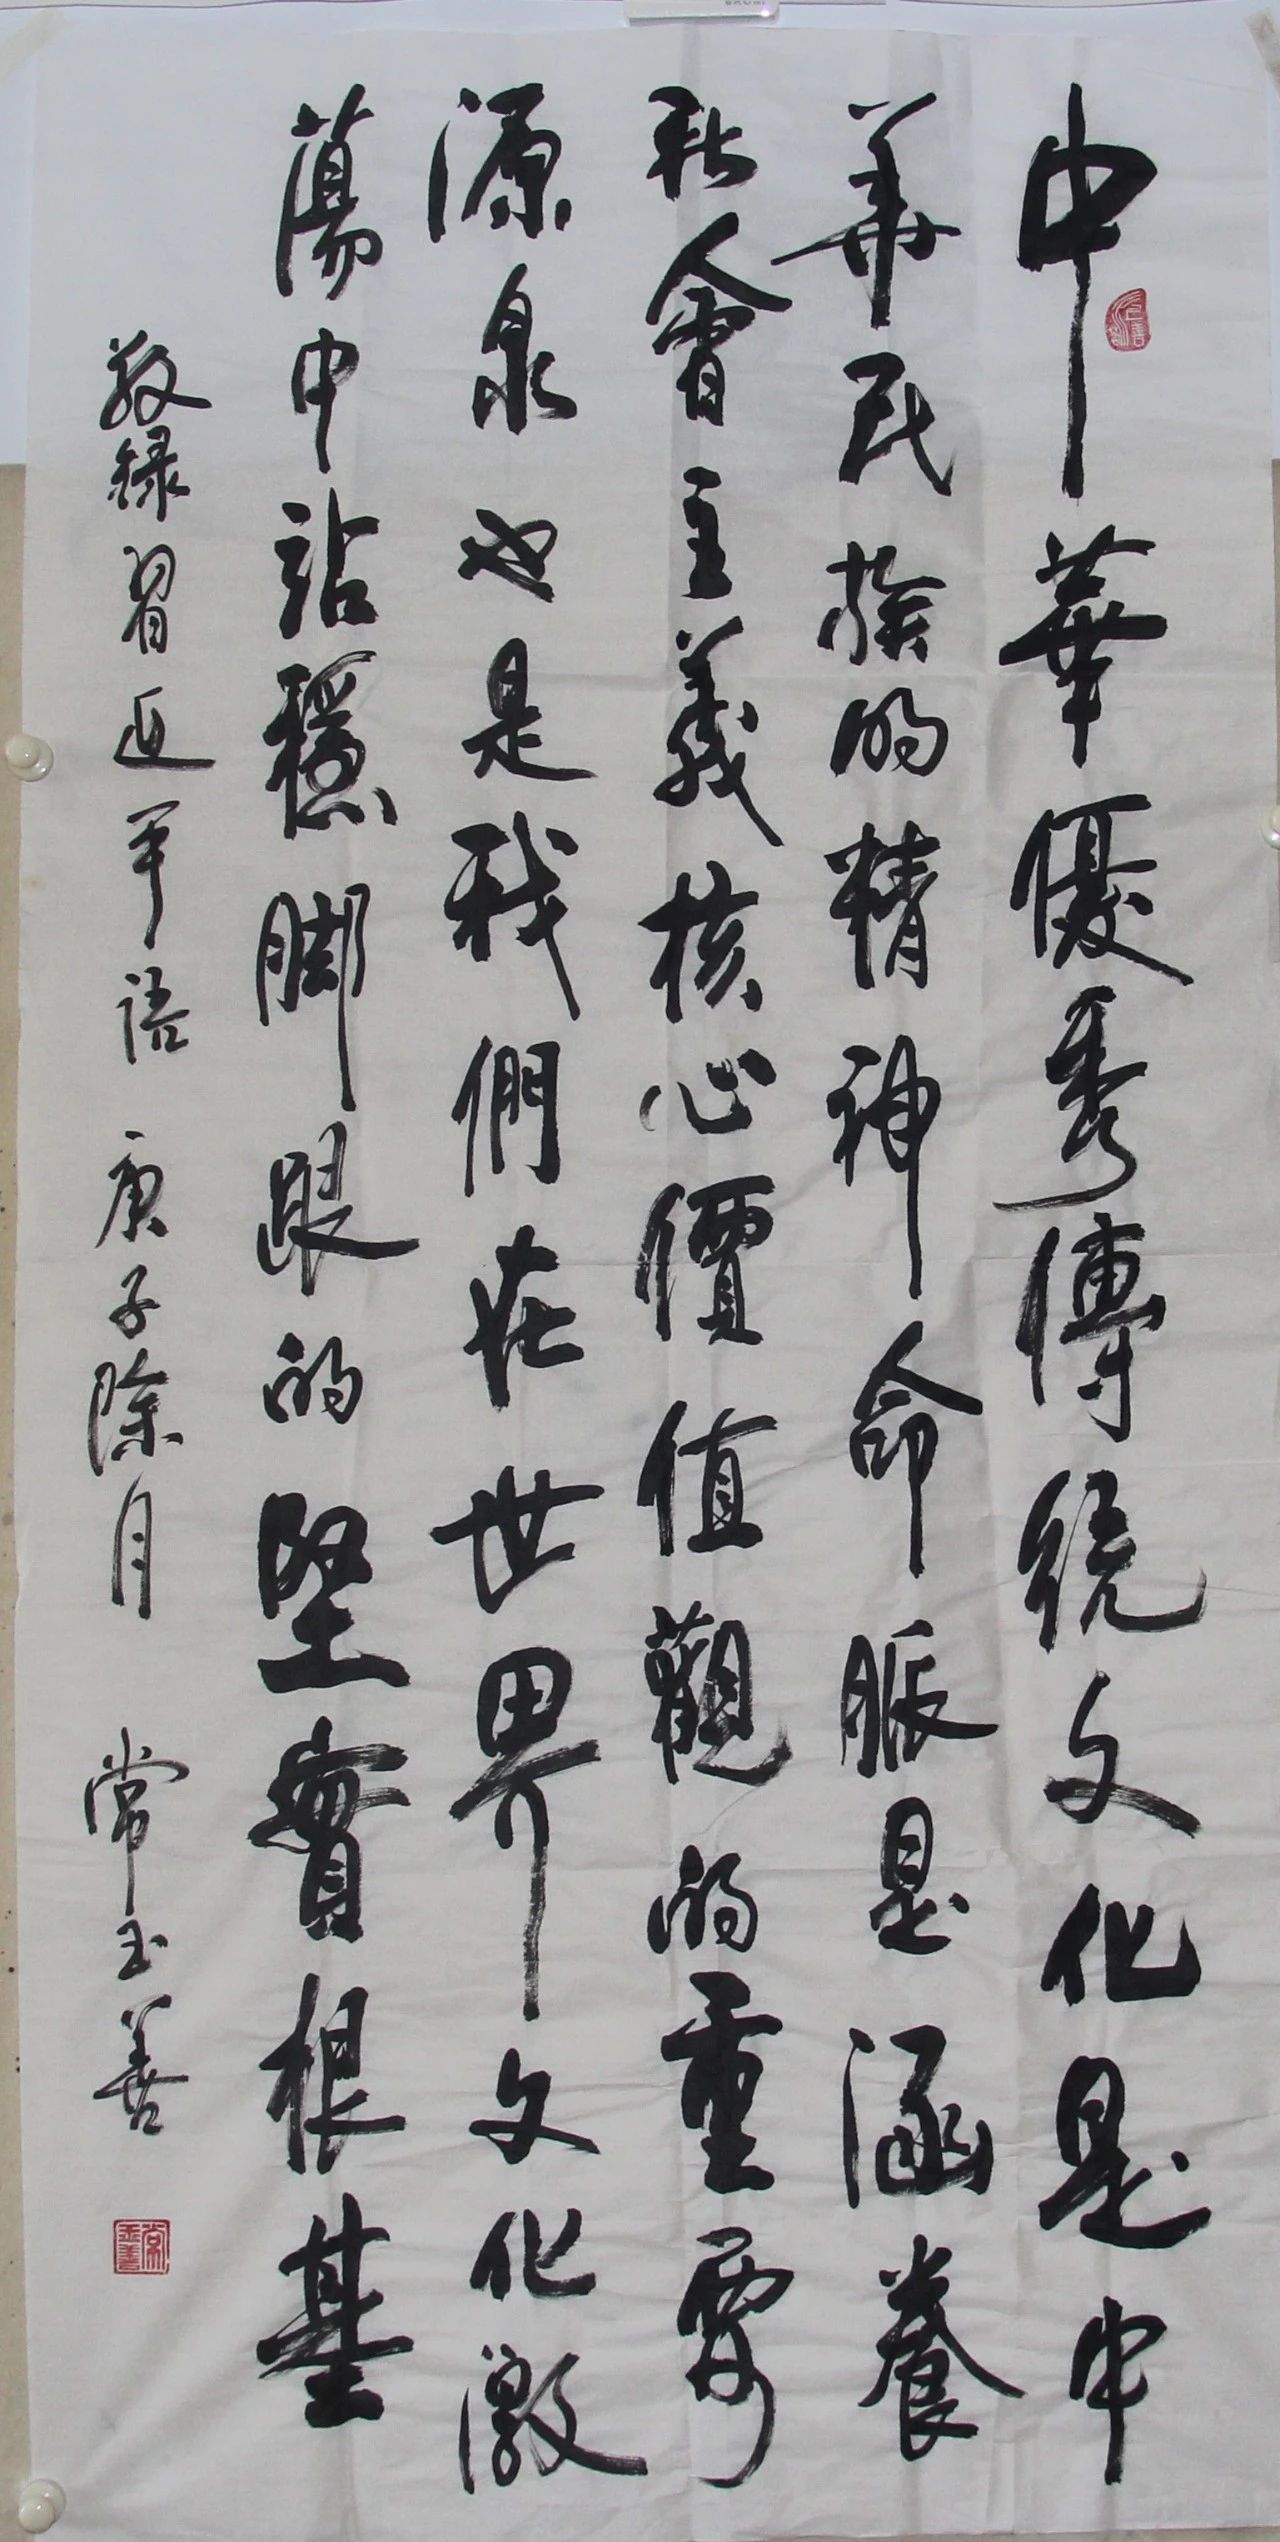 中華優秀傳統文化是中
華民族的精神命脈是涵養
社會主義核心價值觀的重要
源泉也是我們在世界文化激
蕩中站穩脚跟的堅實根基
敬録習近平語 庚子除月 常玉善
常玉善